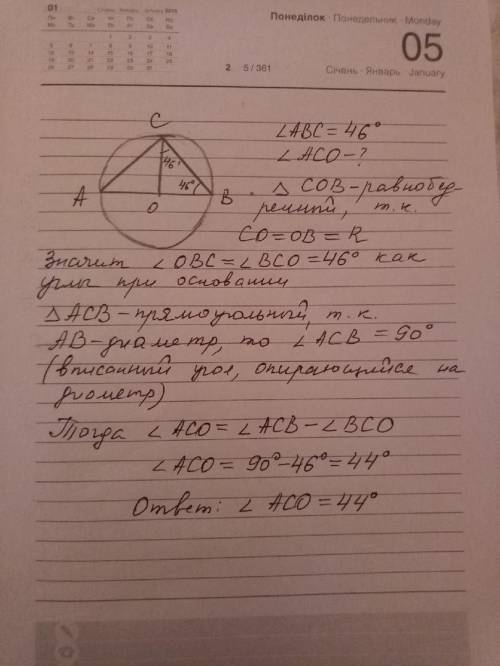 01
Січень · Январь · January 2015
Понеділок · Понедельник · Monday
05
2 5 / 361
Січень · Январь · January
C
∠ABC = 46°
∠ACO - ?
46°
46°
A
B
O
△ COB - равнобед-
ренный, т.к.
CO = OB = R
Значит ∠OBC = ∠BCO = 46° как
углы при основании
△ACB - прямоугольный, т.к.
AB - диаметр, то ∠ACB = 90°
(вписанный угол, опирающийся на
диометр)
Тогда ∠ACO = ∠ACB - ∠BCO
∠ACO = 90° - 46° = 44°
Ответ: ∠ACO = 44°